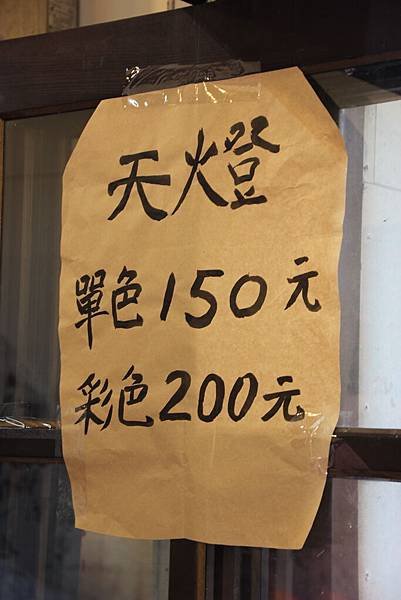 天燈
單色150元
彩色200元